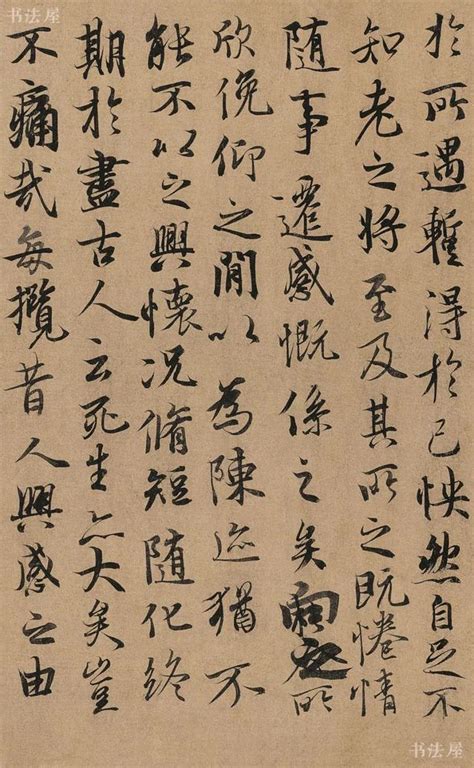 於所遇暫得於己怏然自足不
知老之將至及其所之既惓情
隨事遷感慨係之矣向之所
欣俛仰之閒以為陳迹猶不
能不以之興懷况脩短隨化終
期於盡古人云死生亦大矣豈
不痛哉每攬昔人興感之由
书法屋
书法屋